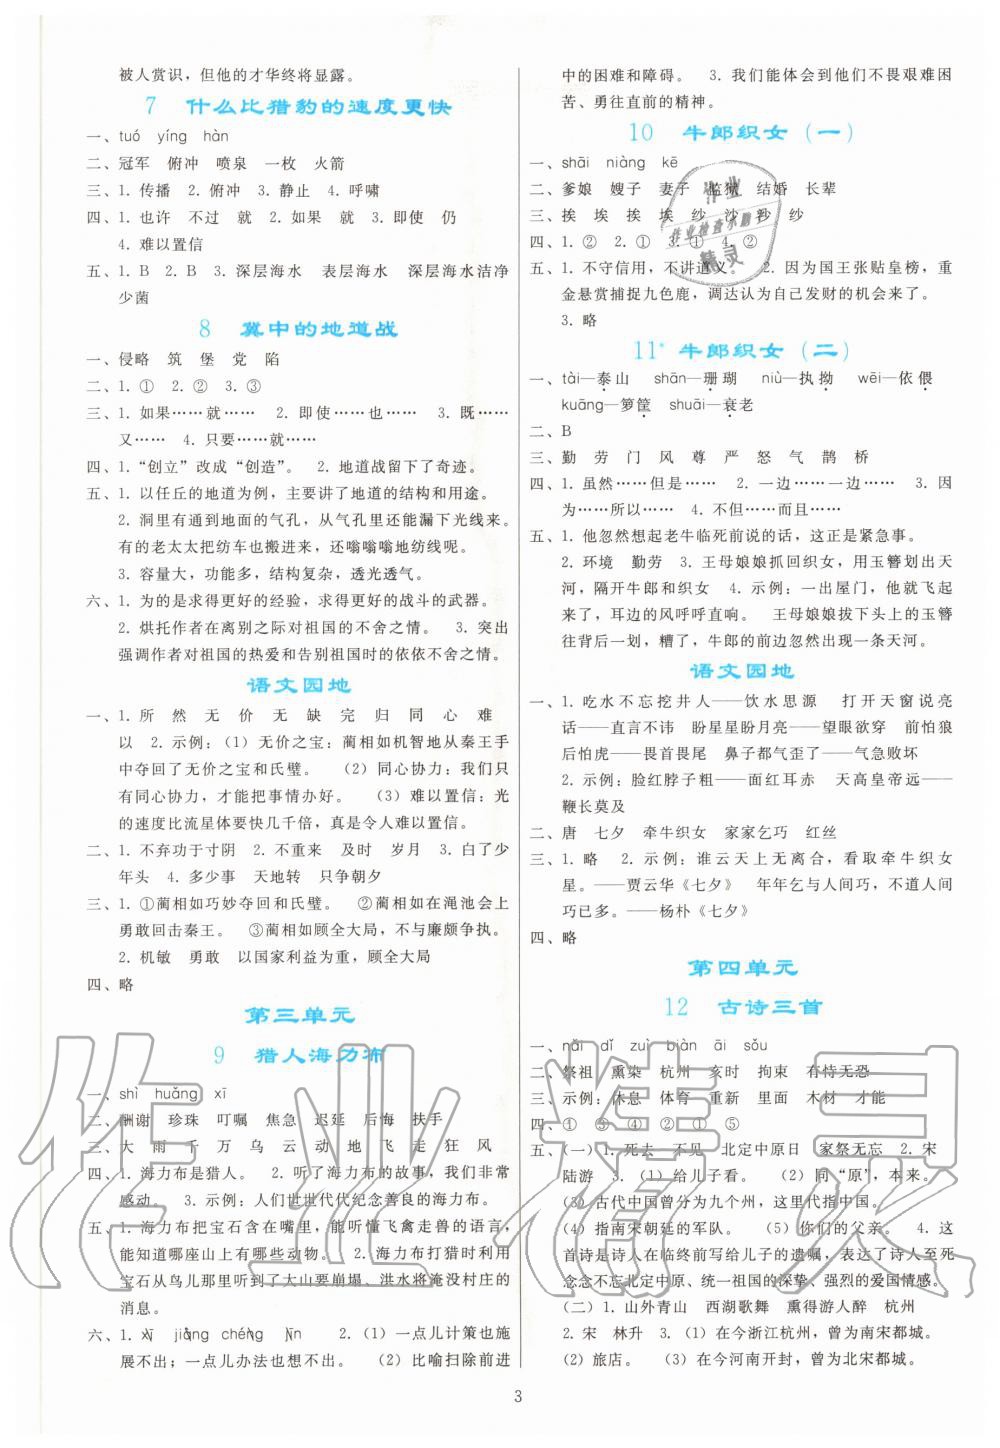 被人赏识，但他的才华终将显露。
7 什么比猎豹的速度更快
一、tuó yíng hàn
二、冠军 俯冲 喷泉 一枚 火箭
三、1. 传播 2. 俯冲 3. 静止 4. 呼啸
四、1. 也许 不过 就 2. 如果 就 3. 即使 仍
4. 难以置信
五、1. B 2. B 3. 深层海水 表层海水 深层海水洁净
少菌
8 冀中的地道战
一、侵略 筑 堡 党 陷
二、1. ① 2. ② 3. ③
三、1. 如果……就…… 2. 即使……也…… 3. 既……
又…… 4. 只要……就……
四、1. “创立”改成“创造”。 2. 地道战留下了奇迹。
五、1. 以任丘的地道为例，主要讲了地道的结构和用途。
2. 洞里有通到地面的气孔，从气孔里还能漏下光线来。
有的老太太把纺车也搬进来，还嗡嗡嗡地纺线呢。
3. 容量大，功能多，结构复杂，透光透气。
六、1. 为的是求得更好的经验，求得更好的战斗的武器。
2. 烘托作者在离别之际对祖国的不舍之情。 3. 突出
强调作者对祖国的热爱和告别祖国时的依依不舍之情。
语文园地
一、1. 所 然 无 价 无 缺 完 归 同 心 难
以 2. 示例：（1）无价之宝：蔺相如机智地从秦王手
中夺回了无价之宝和氏璧。 （2）同心协力：我们只
有同心协力，才能把事情办好。 （3）难以置信：光
的速度比流星体要快几千倍，真是令人难以置信。
二、1. 不弃功于寸阴 2. 不重来 及时 岁月 3. 白了少
年头 4. 多少事 天地转 只争朝夕
三、1. ①蔺相如巧妙夺回和氏璧。 ②蔺相如在渑池会上
勇敢回击秦王。 ③蔺相如顾全大局，不与廉颇争执。
2. 机敏 勇敢 以国家利益为重，顾全大局
四、略
第三单元
9 猎人海力布
一、shì huǎng xī
二、酬谢 珍珠 叮嘱 焦急 迟延 后悔 扶手
三、大 雨 千 万 乌 云 动 地 飞 走 狂 风
四、1. 海力布是猎人。 2. 听了海力布的故事，我们非常
感动。 3. 示例：人们世世代代纪念善良的海力布。
五、1. 海力布把宝石含在嘴里，能听懂飞禽走兽的语言，
能知道哪座山上有哪些动物。 2. 海力布打猎时利用
宝石从鸟儿那里听到了大山要崩塌、洪水将淹没村庄的
消息。
六、1. jiǎng chéng 2. （1）一点儿计策也施
展不出；一点儿办法也想不出。 （2）比喻扫除前进
中的困难和障碍。 3. 我们能体会到他们不畏艰难困
苦、勇往直前的精神。
10 牛郎织女（一）
一、shāi niàng kē
二、爹娘 嫂子 妻子 监狱 结婚 长辈
三、挨 埃 挨 埃 纱 沙 沙 纱
四、1. ② 2. ① 3. ① 4. ②
五、1. 不守信用，不讲道义。 2. 因为国王张贴皇榜，重
金悬赏捕捉九色鹿，调达认为自己发财的机会来了。
3. 略
11* 牛郎织女（二）
一、tài—泰山 shān—珊瑚 niù—执拗 wēi—依偎
kuāng—箩筐 shuāi—衰老
二、B
三、勤 劳 门 风 尊 严 怒 气 鹊 桥
四、1. 虽然……但是…… 2. 一边……一边…… 3. 因
为……所以…… 4. 不但……而且……
五、1. 他忽然想起老牛临死前说的话，这正是紧急事。
2. 环境 勤劳 3. 王母娘娘抓回织女，用玉簪划出天
河，隔开牛郎和织女 4. 示例：一出屋门，他就飞了
起来，耳边的风呼呼直响。 王母娘娘拔下头上的玉簪
往背后一划，糟了，牛郎的前边忽然出现一条天河。
语文园地
一、1. 吃水不忘挖井人——饮水思源 打开天窗说亮
话——直言不讳 盼星星盼月亮——望眼欲穿 前怕狼
后怕虎——畏首畏尾 鼻子都气歪了——气急败坏
2. 示例：脸红脖子粗——面红耳赤 天高皇帝远——
鞭长莫及
二、唐 七夕 牵牛织女 家家乞巧 红丝
三、1. 略 2. 示例：谁云天上无离合，看取牵牛织女
星。——贾云华《七夕》 年年乞与人间巧，不道人间
巧已多。——杨朴《七夕》
四、略
第四单元
12 古诗三首
一、nǎi dǐ zuì biàn āi sǒu
二、祭祖 熏染 杭州 亥时 拘束 有恃无恐
三、示例：休息 体育 重新 里面 木材 才能
四、① ⑤ ④ ② ① ⑤
五、（一）1. 死去 不见 北定中原日 家祭无忘 2. 宋
陆游 3. （1）给儿子看。 （2）同“原”，本来。
（3）古代中国曾分为九个州，这里代指中国。
（4）指南宋朝廷的军队。 （5）你们的父亲。 4. 这
首诗是诗人在临终前写给儿子的遗嘱，表达了诗人至死
念念不忘北定中原、统一祖国的深挚、强烈的爱国情感。
（二）1. 山外青山 西湖歌舞 熏得游人醉 杭州
2. 宋 林升 3. （1）在今浙江杭州，曾为南宋都城。
（2）旅店。 （3）在今河南开封，曾为北宋都城。
3
作业精灵
作业
作业检查小助手
精灵